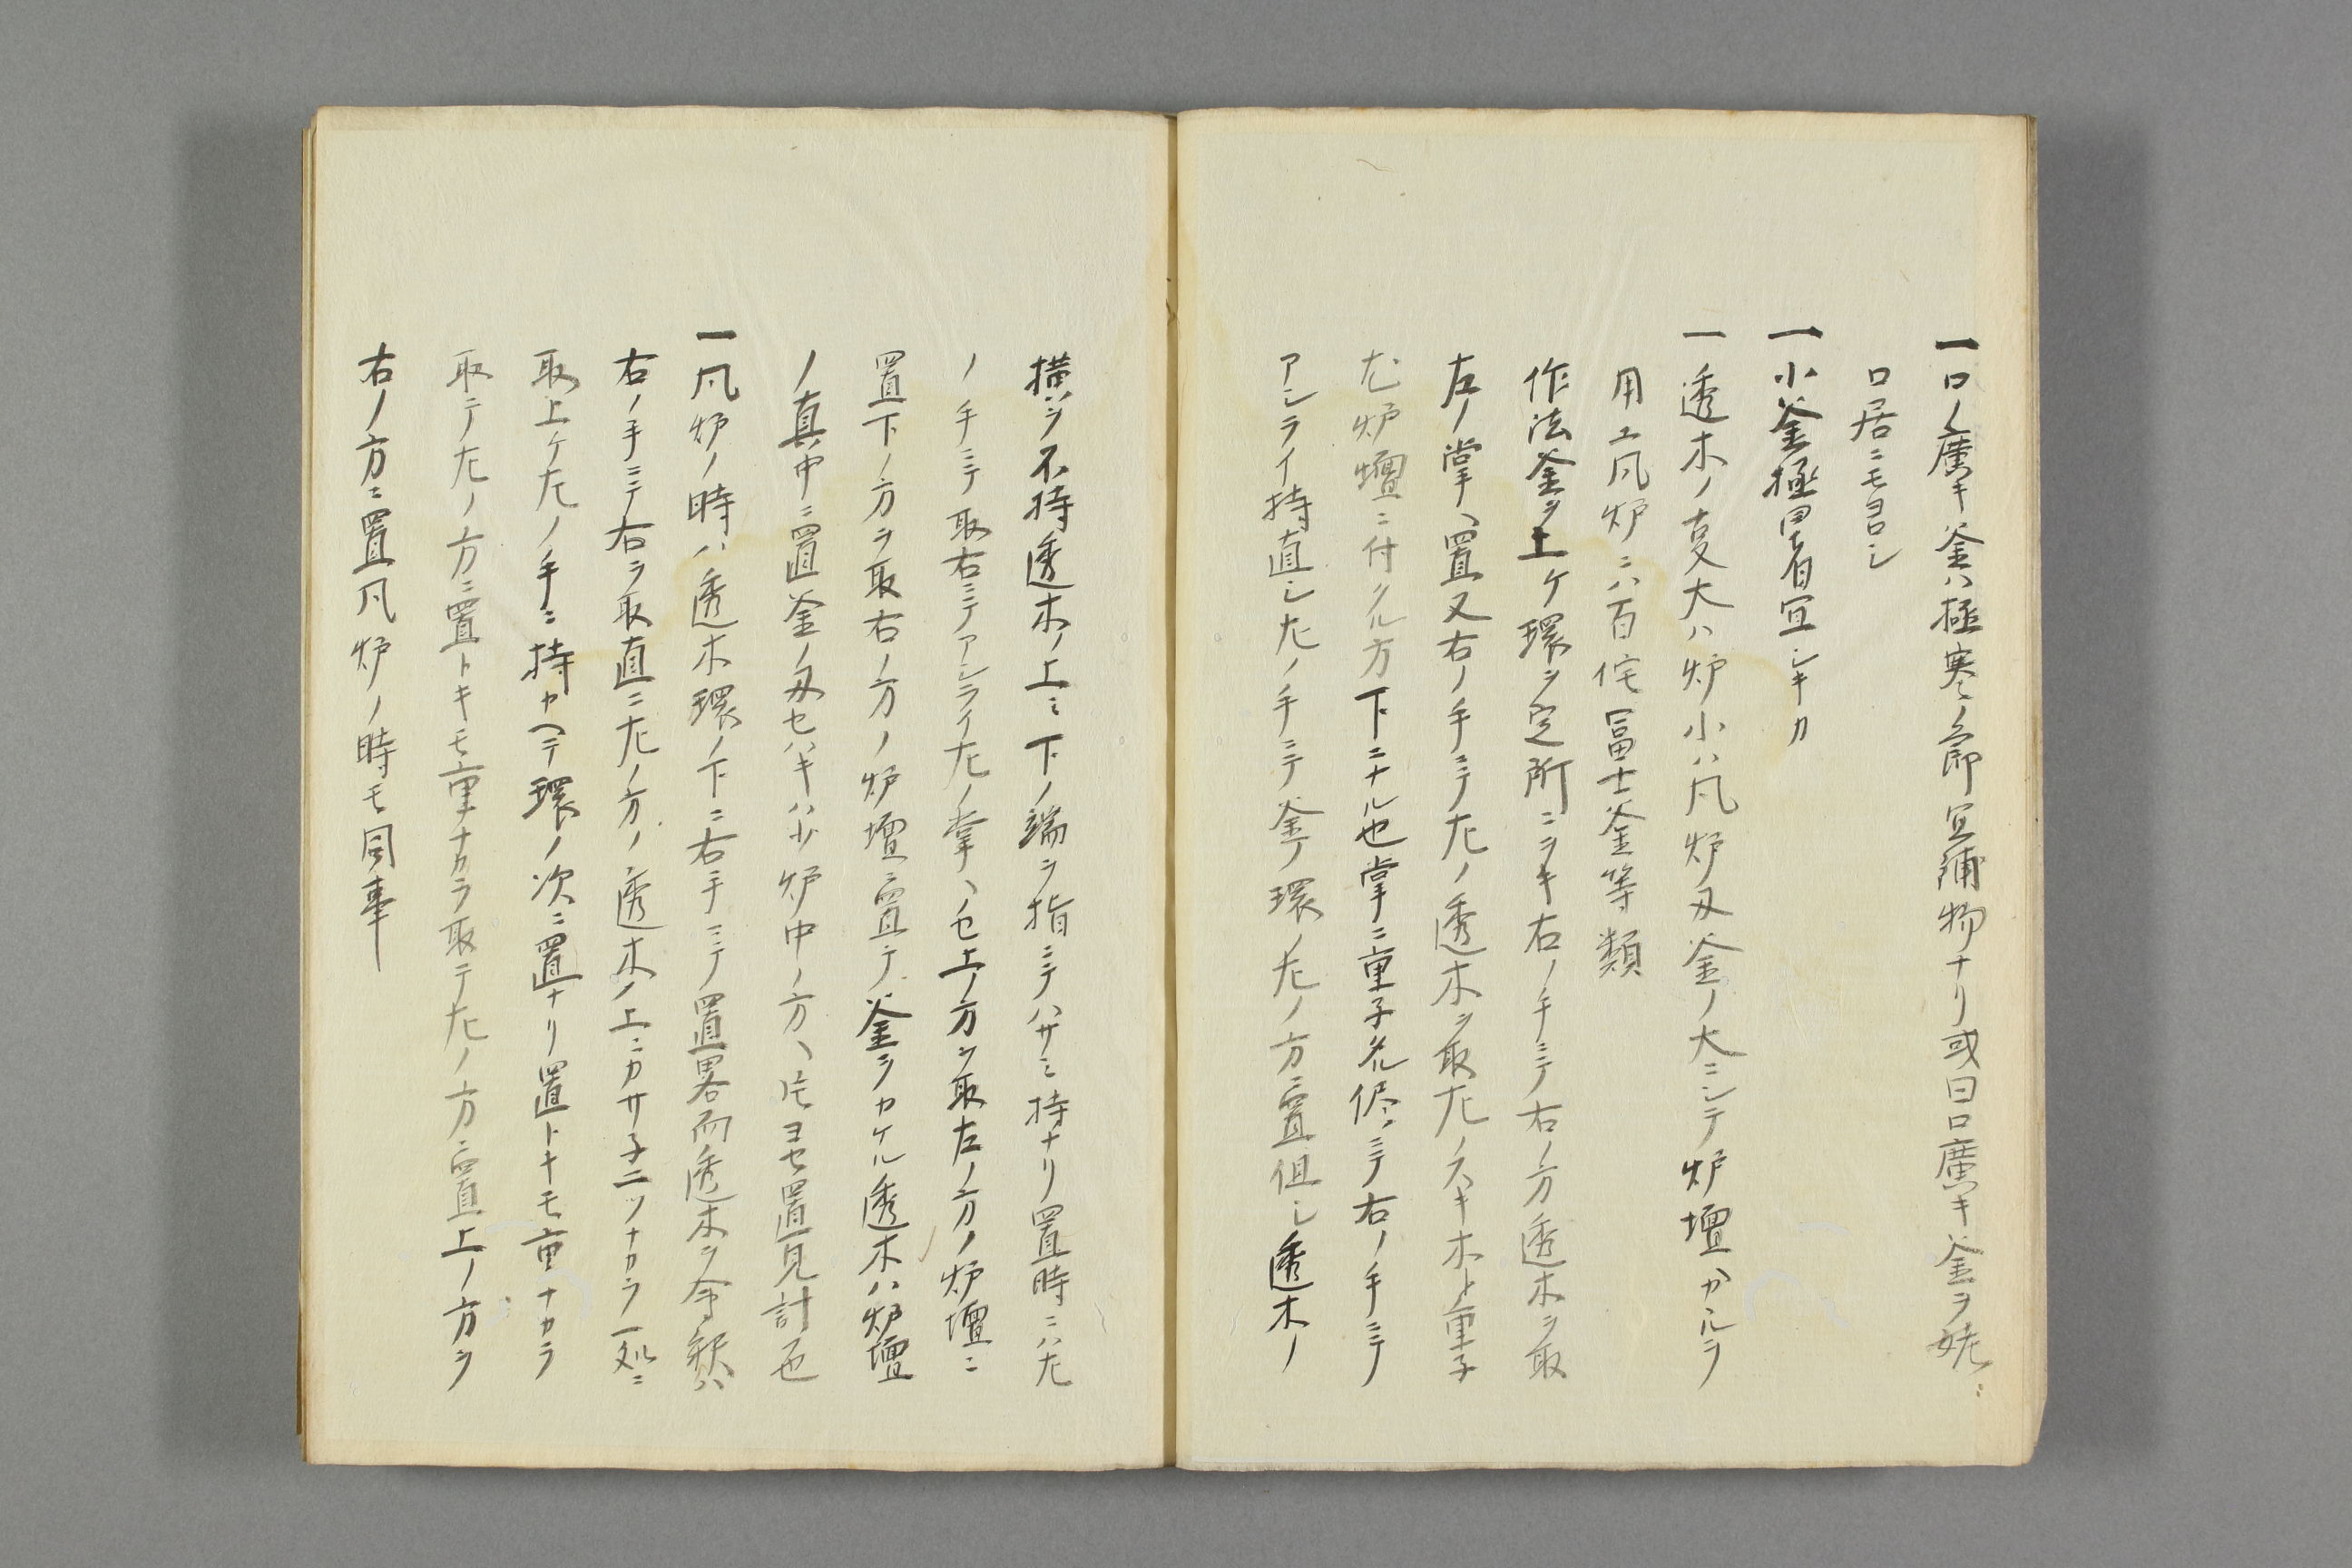 一口ノ廣キ釜ハ極寒ノ節宜鋪物ナリ或曰口廣キ釜ヲ姥
口居ニモヨロシ
一小釜極暑宜シキカ
一透木ノ叓大ハ炉小ハ凡炉又釜ノ大ニシテ炉壇カルヲ
用エ凡炉ニハ百侘冨士釜等類
作法釜ヲ上ケ環ヲ定所ニヲキ右ノ手ニテ右ノ方透木ヲ取
左ノ掌ヘ置又右ノ手ニテ左ノ透木ヲ取左ノスキ木ト重子
左炉壇ニ付タル方下ニナル也掌ニ重子タル侭ニテ右ノ手ニテ
アシライ持直シ左ノ手ニテ釜ノ環ノ左ノ方ニ置但シ透木ノ
横ヲ不持透木ノ上ミ下ノ端ヲ指ニテハサミ持ナリ置時ニハ左
ノ手ニテ取右ニテアシライ左ノ掌ヘノセ上ノ方ヲ取左ノ方ノ炉壇ニ
置下ノ方ヲ取右ノ方ノ炉壇ニ置テ釜ヲカケル透木ハ炉壇
ノ真中ニ置釜ノ刄セハキハ少炉中ノ方ヘ片ヨセ置見計也
一凡炉ノ時ハ透木環ノ下ニ右手ニテ置畧而透木ヲ会釈ハ
右ノ手ニテ右ヲ取直ニ左ノ方ノ透木ノ上ニカサ子二ツナカラ一処ニ
取上ケ左ノ手ニ持カヘテ環ノ次ニ置ナリ置トキモ重ナカラ
取テ左ノ方ニ置トキモ重ナカラ取テ左ノ方ニ置上ノ方ヲ
右ノ方ニ置凡炉ノ時モ同事